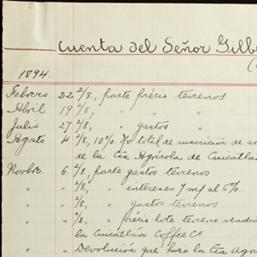 Cuenta del Señor Gilb
1894.
Febrero 22 2/8, parte précio terrenos
Abril 19 2/8, " " "
Julio 27 2/8, " gastos "
Agato 4 2/8, 10% total de suscrición de
de la Cia Agrícola de Cuicatlán
Novbre. 6 2/8, parte gastos terrenos
" " 2/8, " intereses 7 m/ al 6%
" " 2/8, " gastos terrenos
" " 2/8, " précio lote terreno vendi
la Cuicatlán Coffee Co
" " Devolución que hizo la Cia Agr